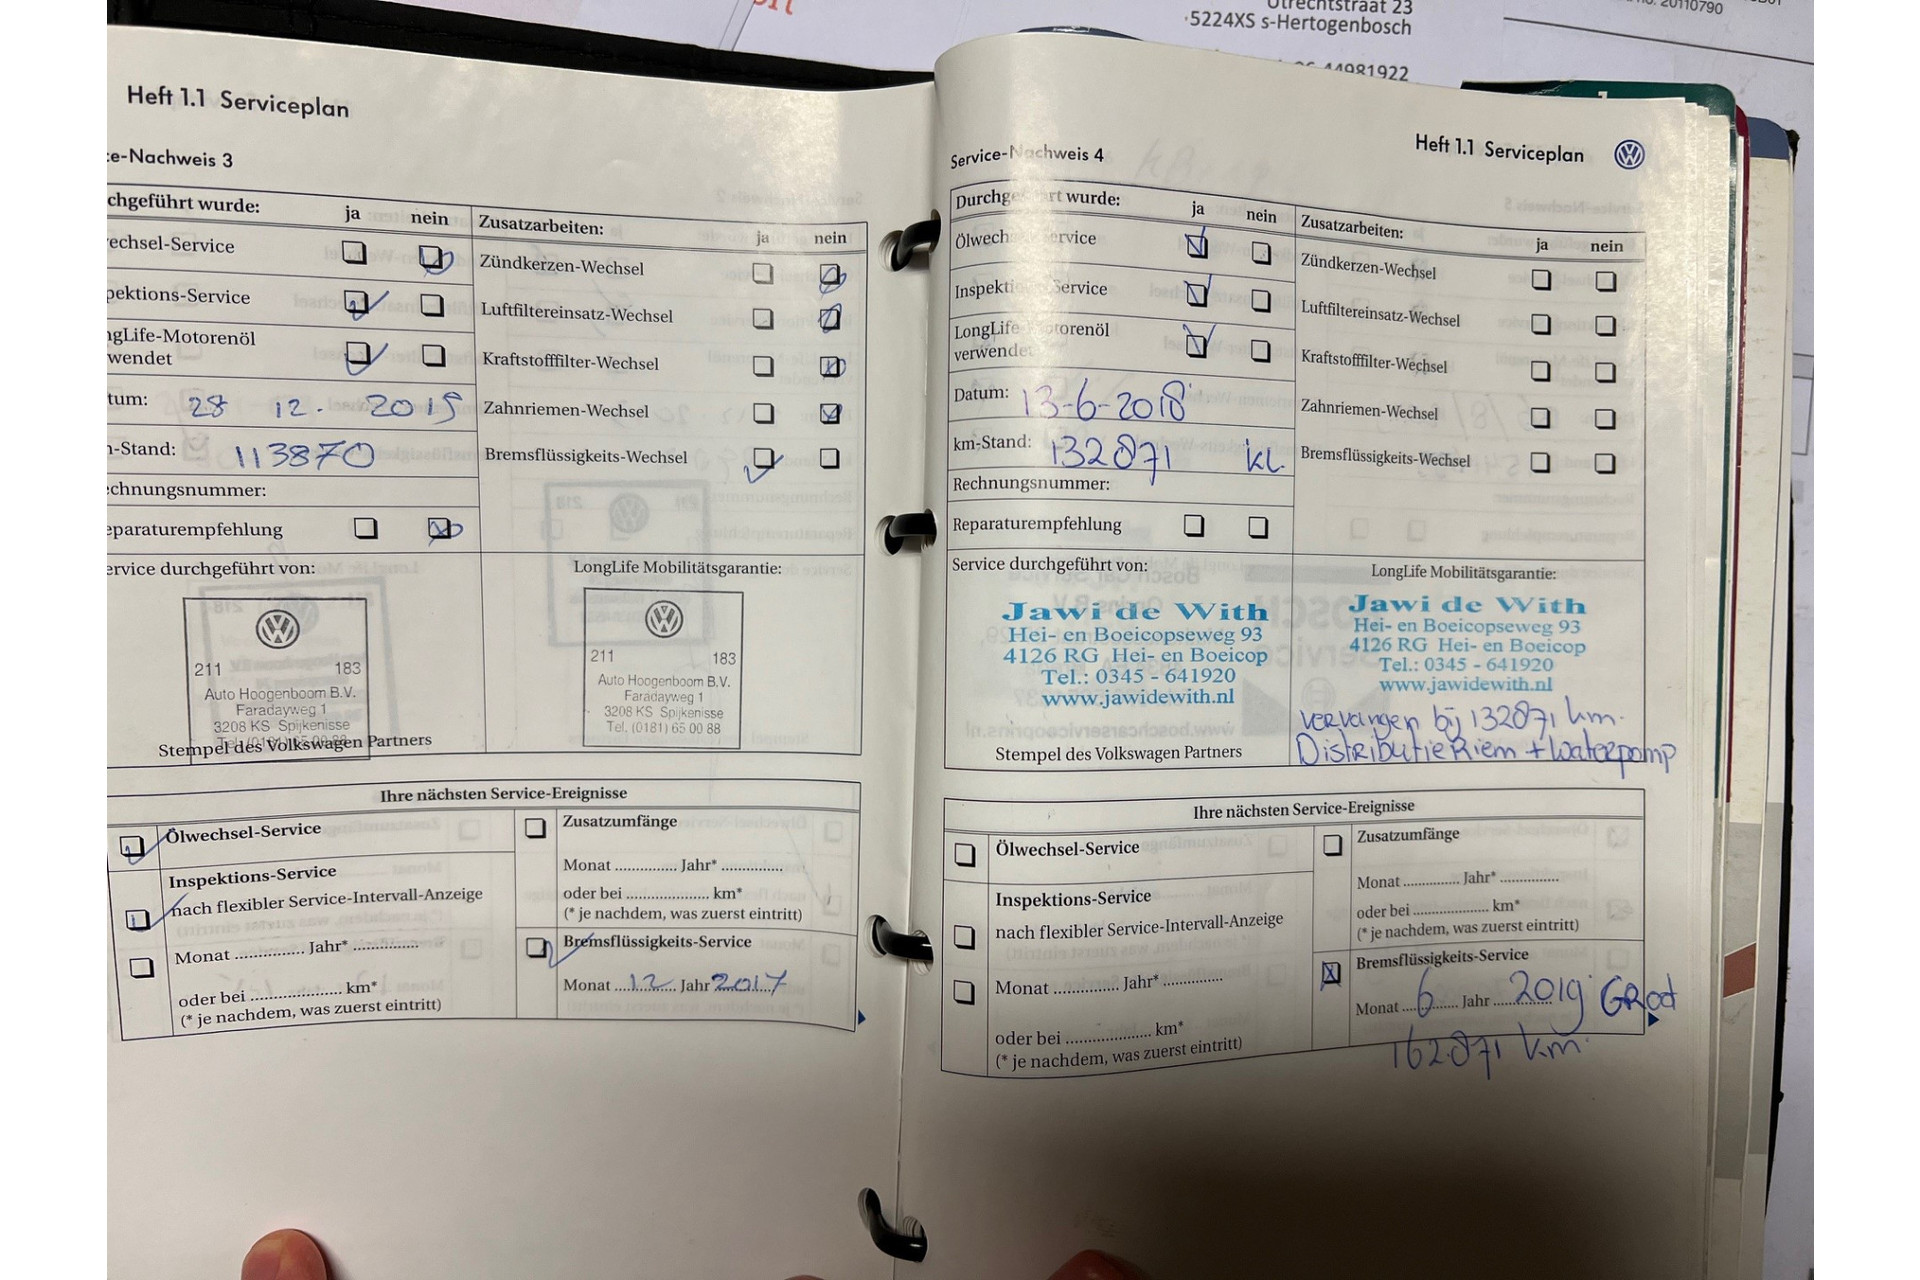 Utrechtstraat 23
5224XS s-Hertogenbosch
44981922
20110790
Heft 1.1 Serviceplan
e-Nachweis 3
chgeführt wurde: ja nein
echsel-Service
pektions-Service
ngLife-Motorenöl
wendet
tum: 28 12. 2015
n-Stand: 113870
echnungsnummer:
eparaturempfehlung
Zusatzarbeiten:
ja nein
Zündkerzen-Wechsel
Luftfiltereinsatz-Wechsel
Kraftstofffilter-Wechsel
Zahnriemen-Wechsel
Bremsflüssigkeits-Wechsel
ervice durchgeführt von:
211 183
Auto Hoogenboom B.V.
Faradayweg 1
3208 KS Spijkenisse
Stempel des Volkswagen Partners
LongLife Mobilitätsgarantie:
211 183
Auto Hoogenboom B.V.
Faradayweg 1
3208 KS Spijkenisse
Tel. (0181) 65 00 88
Ihre nächsten Service-Ereignisse
Ölwechsel-Service
Inspektions-Service
nach flexibler Service-Intervall-Anzeige
Monat .............. Jahr* .............
oder bei .................. km*
(* je nachdem, was zuerst eintritt)
Zusatzumfänge
Monat ............. Jahr* .............
oder bei ................. km*
(* je nachdem, was zuerst eintritt)
Bremsflüssigkeits-Service
Monat 12 Jahr 2017
Heft 1.1 Serviceplan
Service-Nachweis 4
Durchgeführt wurde: ja nein
Ölwechsel-Service
Inspektions-Service
LongLife-Motorenöl
verwendet
Datum: 13-6-2018
km-Stand: 132871 kl.
Rechnungsnummer:
Reparaturempfehlung
Zusatzarbeiten:
ja nein
Zündkerzen-Wechsel
Luftfiltereinsatz-Wechsel
Kraftstofffilter-Wechsel
Zahnriemen-Wechsel
Bremsflüssigkeits-Wechsel
Service durchgeführt von:
Jawi de With
Hei- en Boeicopseweg 93
4126 RG Hei- en Boeicop
Tel.: 0345 - 641920
www.jawidewith.nl
Stempel des Volkswagen Partners
LongLife Mobilitätsgarantie:
Jawi de With
Hei- en Boeicopseweg 93
4126 RG Hei- en Boeicop
Tel.: 0345 - 641920
www.jawidewith.nl
vervangen bij 132871 km.
DistributieRiem + waterpomp
Ihre nächsten Service-Ereignisse
Ölwechsel-Service
Inspektions-Service
nach flexibler Service-Intervall-Anzeige
Monat .............. Jahr* .............
oder bei .................. km*
(* je nachdem, was zuerst eintritt)
Zusatzumfänge
Monat ............. Jahr* .............
oder bei ................. km*
(* je nachdem, was zuerst eintritt)
Bremsflüssigkeits-Service
Monat 6 Jahr 2019
162.871 km.